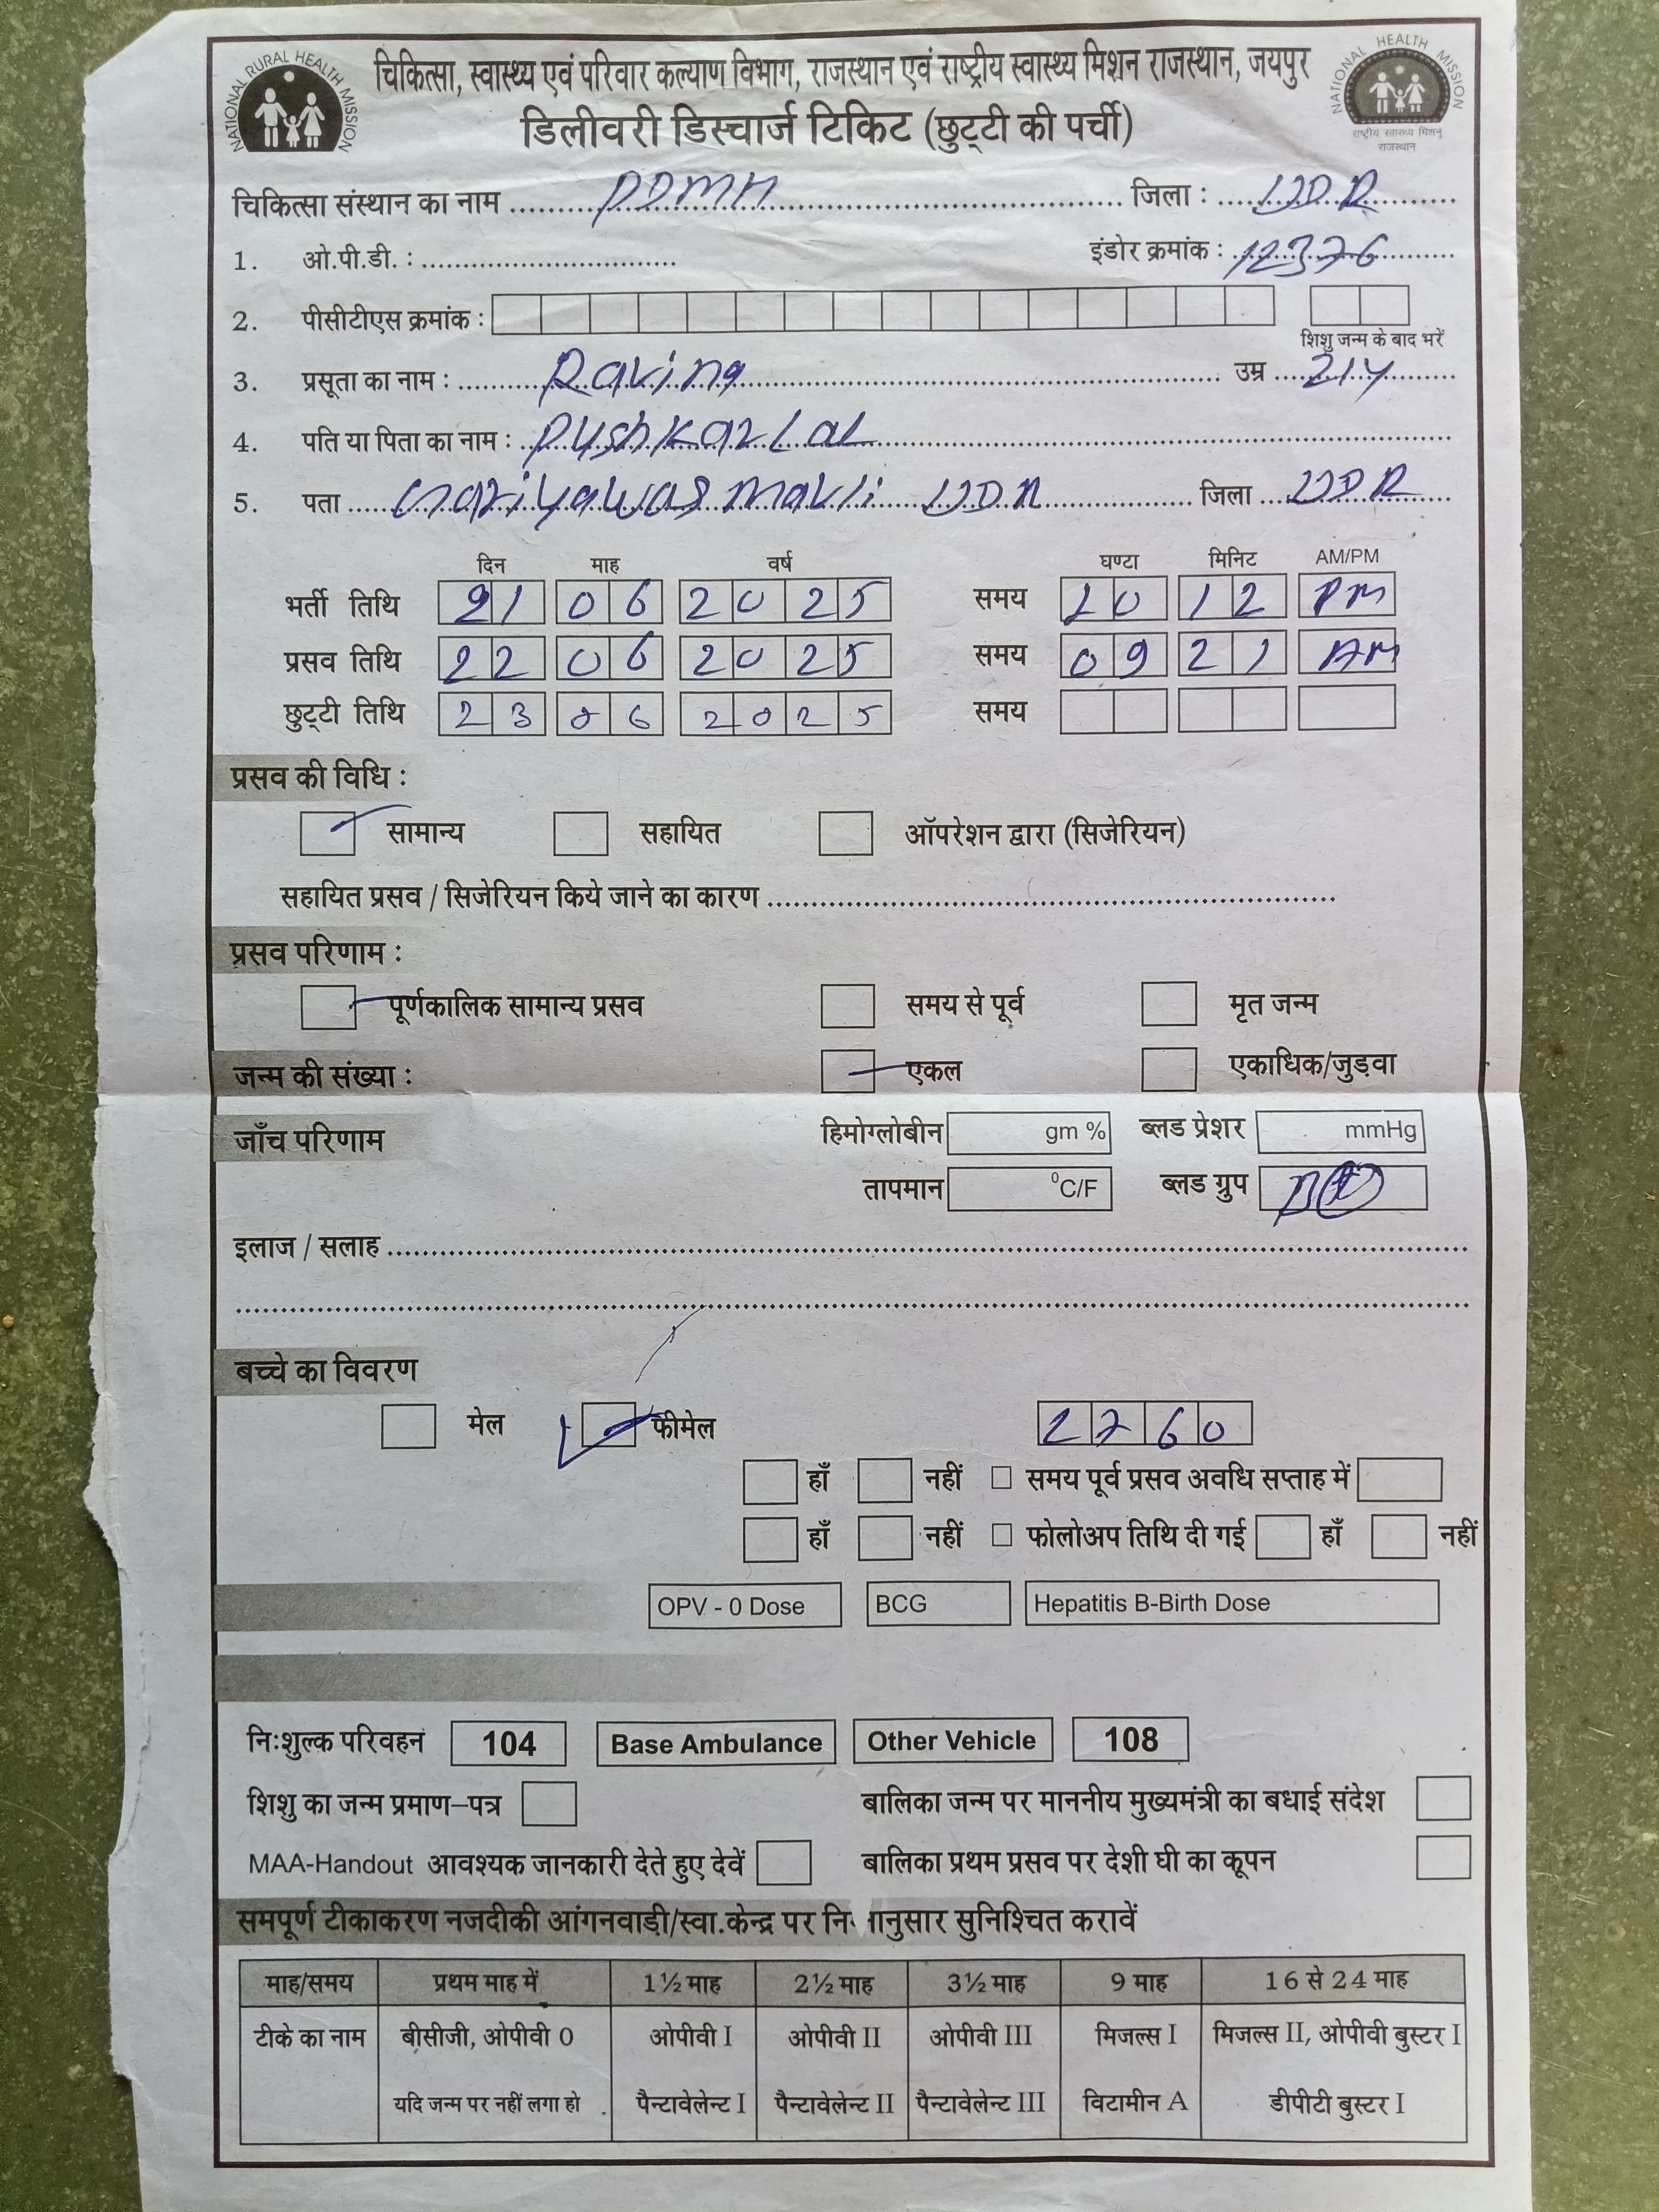 NATIONAL RURAL HEALTH MISSION
NATIONAL HEALTH MISSION
राष्ट्रीय स्वास्थ्य मिशन
राजस्थान
चिकित्सा, स्वास्थ्य एवं परिवार कल्याण विभाग, राजस्थान एवं राष्ट्रीय स्वास्थ्य मिशन राजस्थान, जयपुर
डिलीवरी डिस्चार्ज टिकिट (छुट्टी की पर्ची)
चिकित्सा संस्थान का नाम PDMH जिला : UDR
1. ओ.पी.डी. : इंडोर क्रमांक : 12376
2. पीसीटीएस क्रमांक :
शिशु जन्म के बाद भरें
3. प्रसूता का नाम : Ravina उम्र 21y
4. पति या पिता का नाम : Pushkar Lal
5. पता Mavli UDR जिला UDR
दिन माह वर्ष घण्टा मिनिट AM/PM
भर्ती तिथि 21 06 2025 समय 10 12 PM
प्रसव तिथि 22 06 2025 समय 09 21 AM
छुट्टी तिथि 23 06 2025 समय
प्रसव की विधि :
सामान्य सहायित ऑपरेशन द्वारा (सिजेरियन)
सहायित प्रसव / सिजेरियन किये जाने का कारण
प्रसव परिणाम :
पूर्णकालिक सामान्य प्रसव समय से पूर्व मृत जन्म
जन्म की संख्या : एकल एकाधिक/जुड़वा
जाँच परिणाम हिमोग्लोबीन gm % ब्लड प्रेशर mmHg
तापमान °C/F ब्लड ग्रुप B⊕
इलाज / सलाह
बच्चे का विवरण
मेल फीमेल 2760
हाँ नहीं समय पूर्व प्रसव अवधि सप्ताह में
हाँ नहीं फोलोअप तिथि दी गई हाँ नहीं
OPV - 0 Dose BCG Hepatitis B-Birth Dose
निःशुल्क परिवहन 104 Base Ambulance Other Vehicle 108
शिशु का जन्म प्रमाण–पत्र बालिका जन्म पर माननीय मुख्यमंत्री का बधाई संदेश
MAA-Handout आवश्यक जानकारी देते हुए देवें बालिका प्रथम प्रसव पर देशी घी का कूपन
समपूर्ण टीकाकरण नजदीकी आंगनवाड़ी/स्वा.केन्द्र पर नि ानुसार सुनिश्चित करावें
माह/समय प्रथम माह में 1½ माह 2½ माह 3½ माह 9 माह 16 से 24 माह
टीके का नाम बीसीजी, ओपीवी 0 ओपीवी I ओपीवी II ओपीवी III मिजल्स I मिजल्स II, ओपीवी बुस्टर I
यदि जन्म पर नहीं लगा हो पैन्टावेलेन्ट I पैन्टावेलेन्ट II पैन्टावेलेन्ट III विटामीन A डीपीटी बुस्टर I